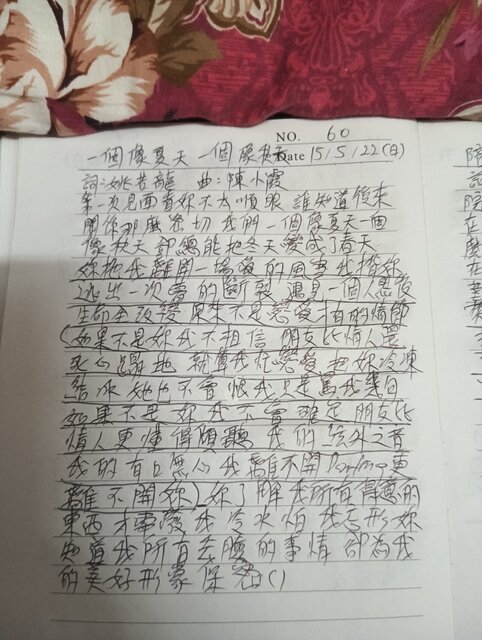 NO. 60
一個像夏天 一個像秋天 Date 15/5/22(日)
詞:姚若龍 曲:陳小霞
第一次見面看妳不太順眼 誰知道後來
關係那麼密切 我們一個像夏天一個
像秋天 卻總能把冬天變成了春天
妳拖我離開一場愛的風雪 我揹妳
逃出一次夢的斷裂 遇見一個人然後
生命全改變 原來不是戀愛才有的情節
(如果不是妳我不相信 朋友比情人還
死心蹋地 就算我忙戀愛 把妳冷凍
結冰 妳也不會恨我 只是罵我幾句
如果不是妳我不會確定 朋友比
情人更懂得傾聽 我的弦外之音
我的有口無心 我離不開Darling更
離不開妳) 妳了解我所有得意的
東西 才常潑我冷水怕我忘形 妳
知道我所有丟臉的事情 卻為我
的美好形象保密()